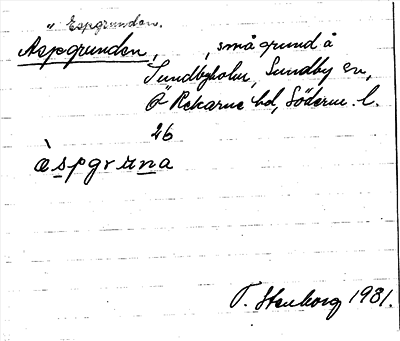 " Espgrunden.
Aspgrunden, , små grund å
Sundbyholm, Sundby sn,
Ö Rekarne hd, Söderm. l.
26
àspgruna
T. Stenborg 1931.